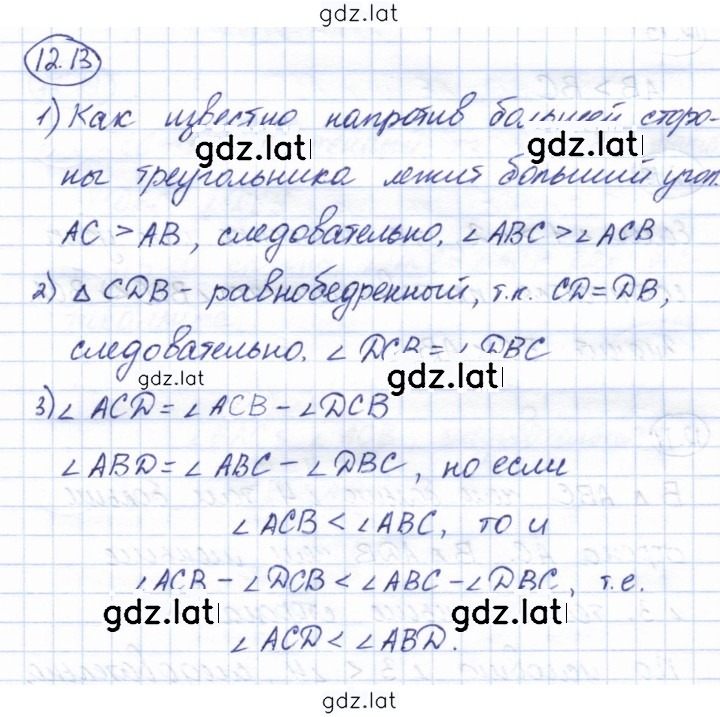 gdz.lat
12.13
1) Как известно напротив большей сторо-
gdz.lat
ны треугольника лежит больший угол.
AC > AB, следовательно, ∠ABC > ∠ACB
2) △ CDB - равнобедренный, т.к. CD = DB,
следовательно, ∠ DCB = ∠ DBC
gdz.lat
gdz.lat
3) ∠ ACD = ∠ ACB - ∠DCB
∠ABD = ∠ ABC - ∠DBC, но если
∠ ACB < ∠ABC, то и
∠ACB - ∠DCB < ∠ABC - ∠DBC, т.е.
gdz.lat
gdz.lat
∠ ACD < ∠ABD.
gdz.lat